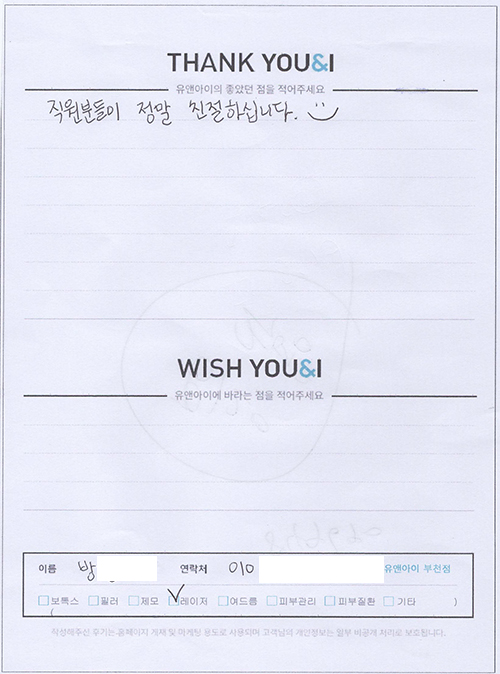 THANK YOU&I
유앤아이의 좋았던 점을 적어주세요
직원분들이 정말 친절하십니다.
WISH YOU&I
유앤아이에 바라는 점을 적어주세요
이름 방 연락처 010 유앤아이 부천점
보톡스 필러 제모 레이저 여드름 피부관리 피부질환 기타
( )
작성해주신 후기는 홈페이지 게재 및 마케팅 용도로 사용되며 고객님의 개인정보는 일부 비공개 처리로 보호됩니다.